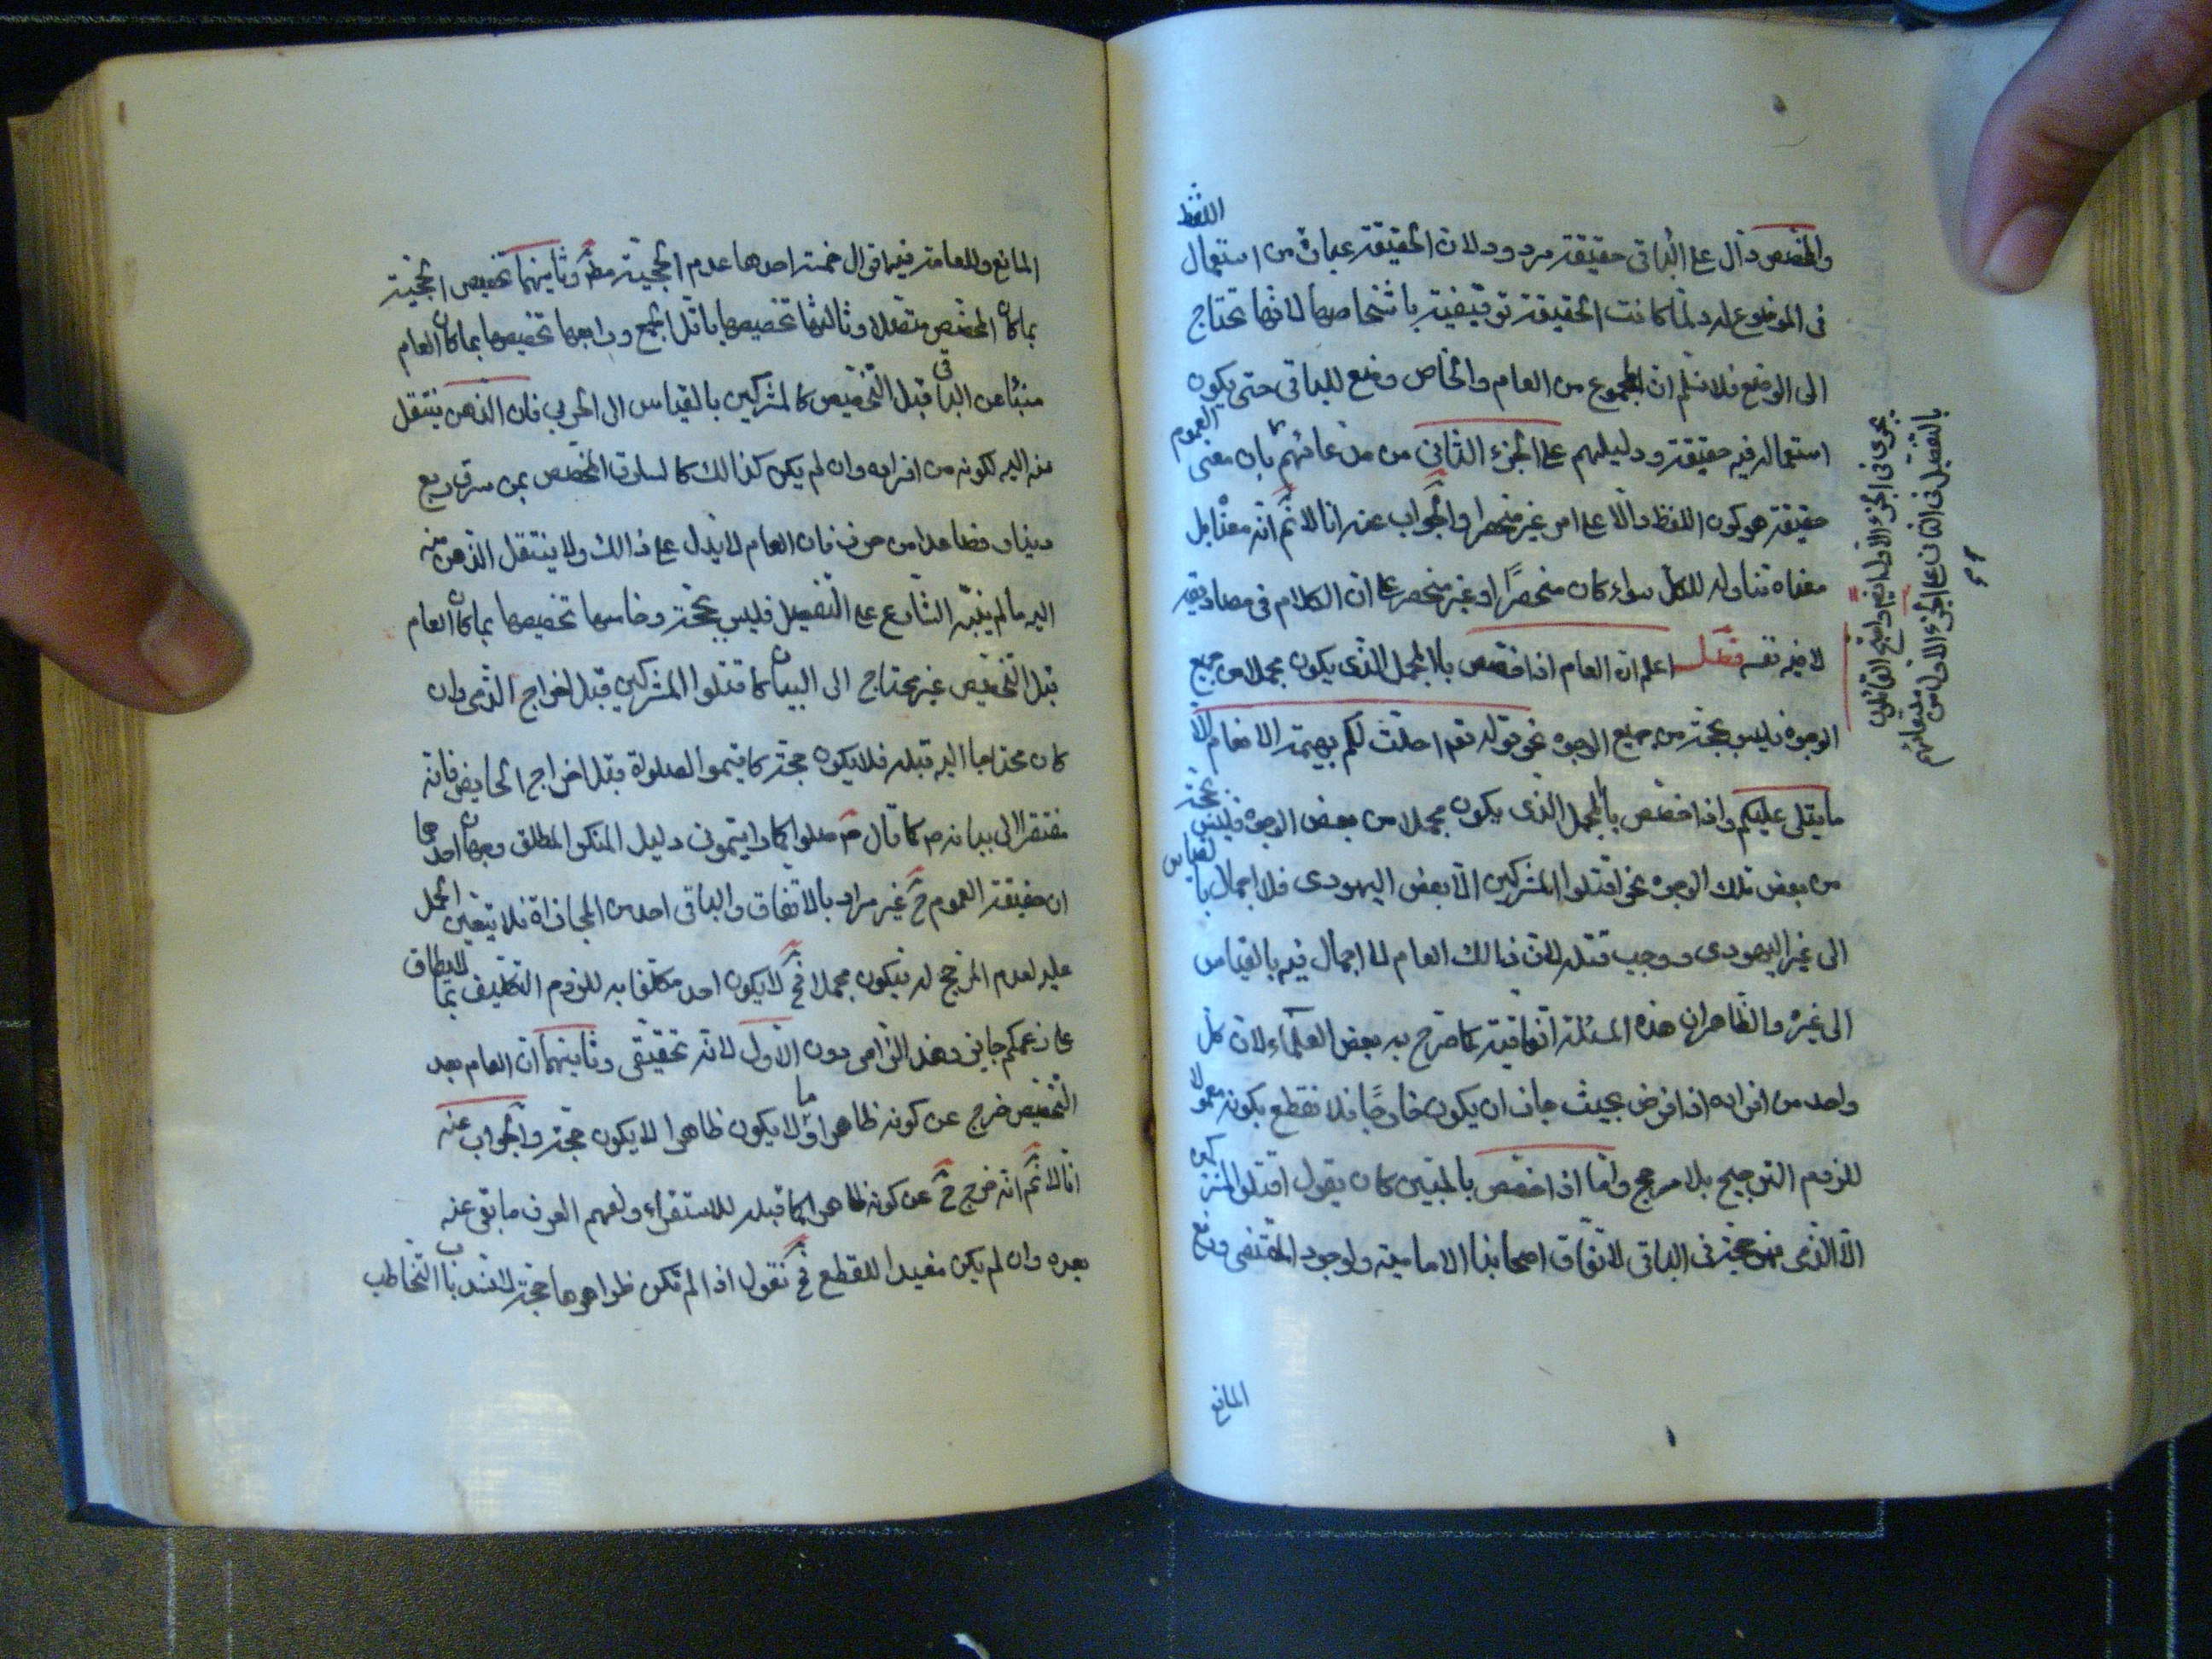 والمخصص دال على الباقى حقيقة مردود لان الحقيقة عبارة من استعمال اللفظ
فى الموضوع له ولما كانت الحقيقة توقيفية باشخاصها لانها تحتاج
الى الوضع فلا نسلم ان المجموع من العام والخاص وضع للباقى حتى يكون
استعماله فيه حقيقة ودليلهم على الجزء الثانى من مدعائهم بان معنى العموم
حقيقة هو كون اللفظ دالا على امر غير منحصر والجواب عنه انا لا نم انه معناه بل
معناه تناوله للكل سواء كان منحصرا او غير منحصر على ان الكلام فى مصاديقه
لا فيه نفسه فصل اعلم ان العام اذا خصص بالمجمل الذى يكون مجملا من جميع
الوجوه فليس بحجة من جميع الوجوه نحو قوله تعم احلت لكم بهيمة الانعام الا
ما يتلى عليكم واذا خصص بالمجمل الذى يكون مجملا من بعض الوجوه فليس بحجة
من بعض تلك الوجوه نحو اقتلوا المشركين الا بعض اليهودى فلا اجمال بالقياس
الى غير اليهودى ووجب قتله لان ذالك العام لا اجمال فيه بالقياس
الى غيره والظاهر ان هذه المسئلة اتفاقية كما صرح به بعض العلماء لان كل
واحد من افراده اذا فرض بحيث جاز ان يكون خارجا فلا نقطع بكونه معمولا
للزوم الترجيح بلا مرجح واما اذا خصص بالمبين كان يقول اقتلوا المشركين
الا الذمى فهى حجة فى الباقى لاتفاق اصحابنا الامامية ولوجود المقتضى ورفع
المانع
يجرى فى الجزء الاول ايضا واحتج القائلون
بالتفصيل فى الثانى على الجزء الاول من مدعائهم
المانع وللعامة فيه اقوال خمسة احدها عدم الحجية مط وثانيها تخصيص الحجية
بما كان المخصص متصلا وثالثها تخصيصها باقل الجمع ورابعها تخصيصها بما كان العام
منبئا عن الباقى قبل التخصيص كالمشركين بالقياس الى الحربى فان الذهن ينتقل
منه اليه لكونه من افراده وان لم يكن كذالك كالسارق المخصص بمن سرق ربع
دينار فصاعدا من حرز فان العام لا يدل على ذالك ولا ينتقل الذهن منه
اليه ما لم ينبه الشارع على التفصيل فليس بحجة وخامسها تخصيصها بما كان العام
قبل التخصيص غير محتاج الى البيان كاقتلوا المشركين قبل اخراج الذمى وان
كان محتاجا اليه قبله فلا يكون حجة كاقيموا الصلوة قبل اخراج الحايض فانه
مفتقر الى بيانه ص كما قال ص صلوا كما رايتمونى دليل المنكر المطلق وجهان احدها
ان حقيقة العموم ح غير مراد بالاتفاق والباقى احد من المجازاة فلا يتعين الحمل
عليه لعدم المرجح له فيكون مجملا فح لا يكون احد مكلفا به للزوم التكليف بما لا يطاق
على زعمكم جايز وهذا الزامى دون الاول لانه تحقيقى وثانيهما ان العام بعد
التخصيص خرج عن كونه ظاهرا وما لا يكون ظاهرا لا يكون حجة والجواب عنه
انا لا نم انه خرج ح عن كونه ظاهرا كما قبله للاستقراء ولفهم العرف ما بقى عنه
بعده وان لم يكن مفيدا للقطع فح نقول اذا لم تكن ظواهرها حجة لانسد باب التخاطب